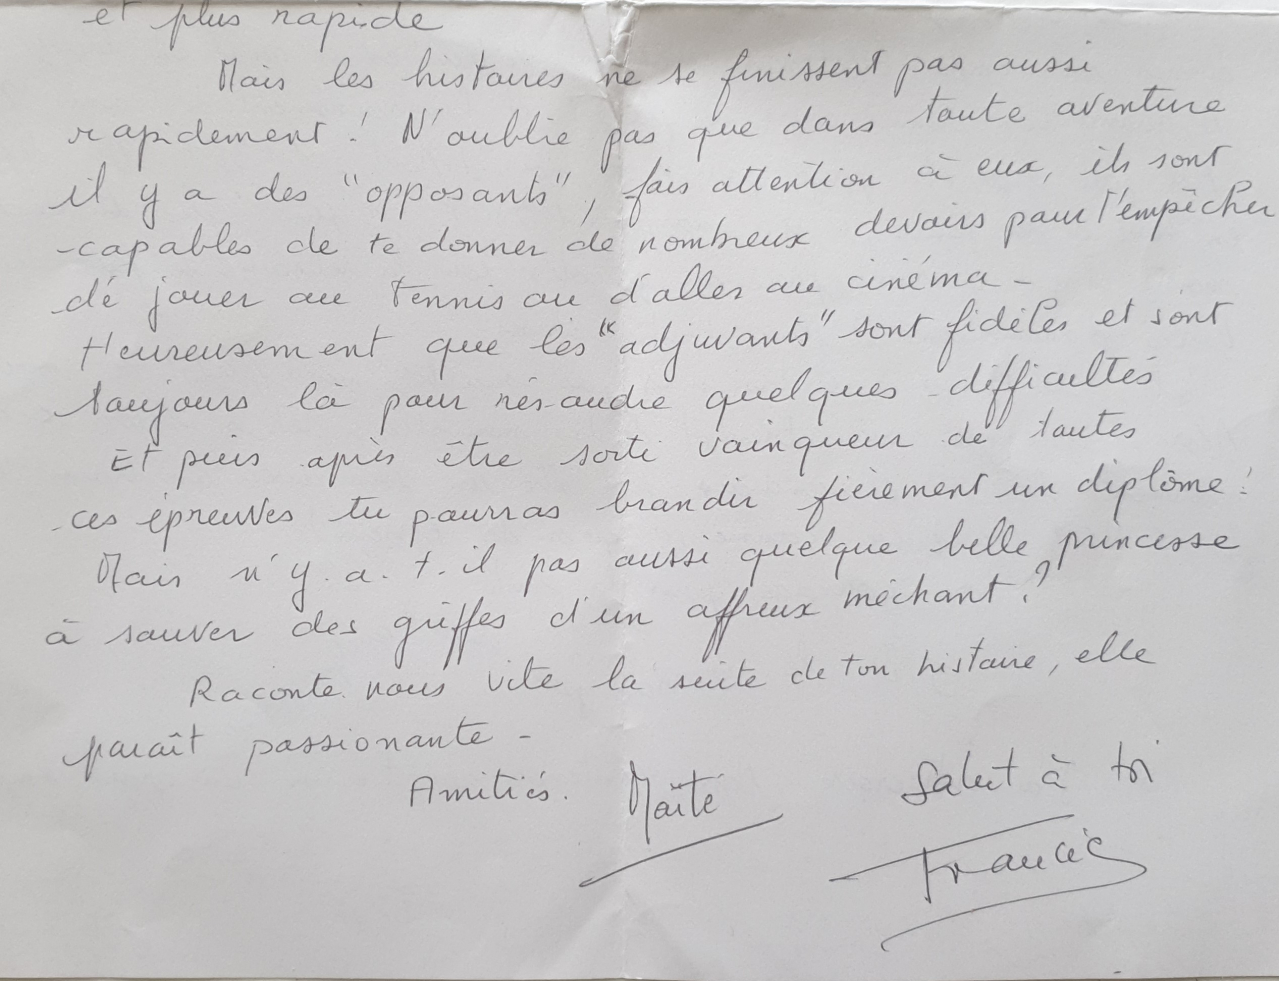 et plus rapide
Mais les histoires ne se finissent pas aussi
rapidement ! N'oublie pas que dans toute aventure
il y a des "opposants", fais attention à eux, ils sont
capables de te donner de nombreux devoirs pour t'empêcher
de jouer au tennis ou d'aller au cinéma -
Heureusement que les "adjuvants" sont fidèles et sont
toujours là pour résoudre quelques difficultés
Et puis après être sorti vainqueur de toutes
ces épreuves tu pourras brandir fièrement un diplôme !
Mais n'y.a.t.il pas aussi quelque belle princesse
à sauver des griffes d'un affreux méchant ?
Raconte.nous vite la suite de ton histoire, elle
paraît passionante -
Amitiés. Maïté
Salut à toi
Francis